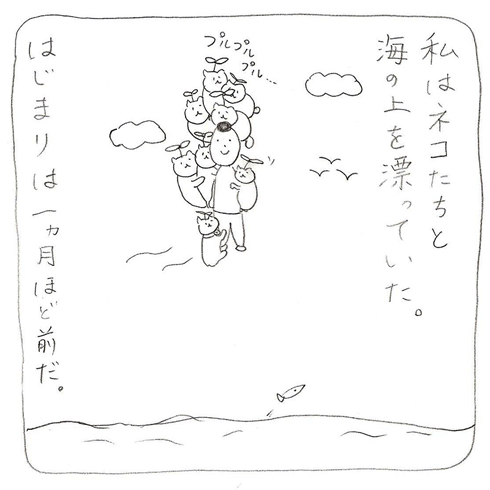 私はネコたちと
海の上を漂っていた。
プルプル
プル…
はじまりは一ヵ月ほど前だ。